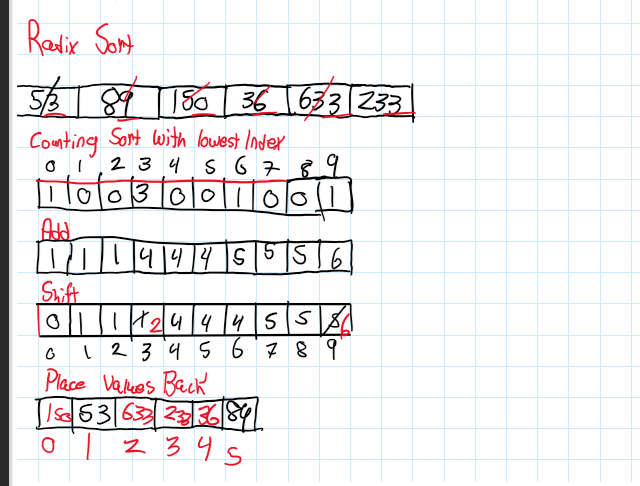 Radix Sort
53 89 150 36 633 233
Counting Sort with lowest Index
0 1 2 3 4 5 6 7 8 9
1 0 0 3 0 0 1 0 0 1
Add
1 1 1 4 4 4 5 5 5 6
Shift
0 1 1 1 2 4 4 4 5 5 5 6
0 1 2 3 4 5 6 7 8 9
Place Values Back
150 53 633 233 36 89
0 1 2 3 4 5